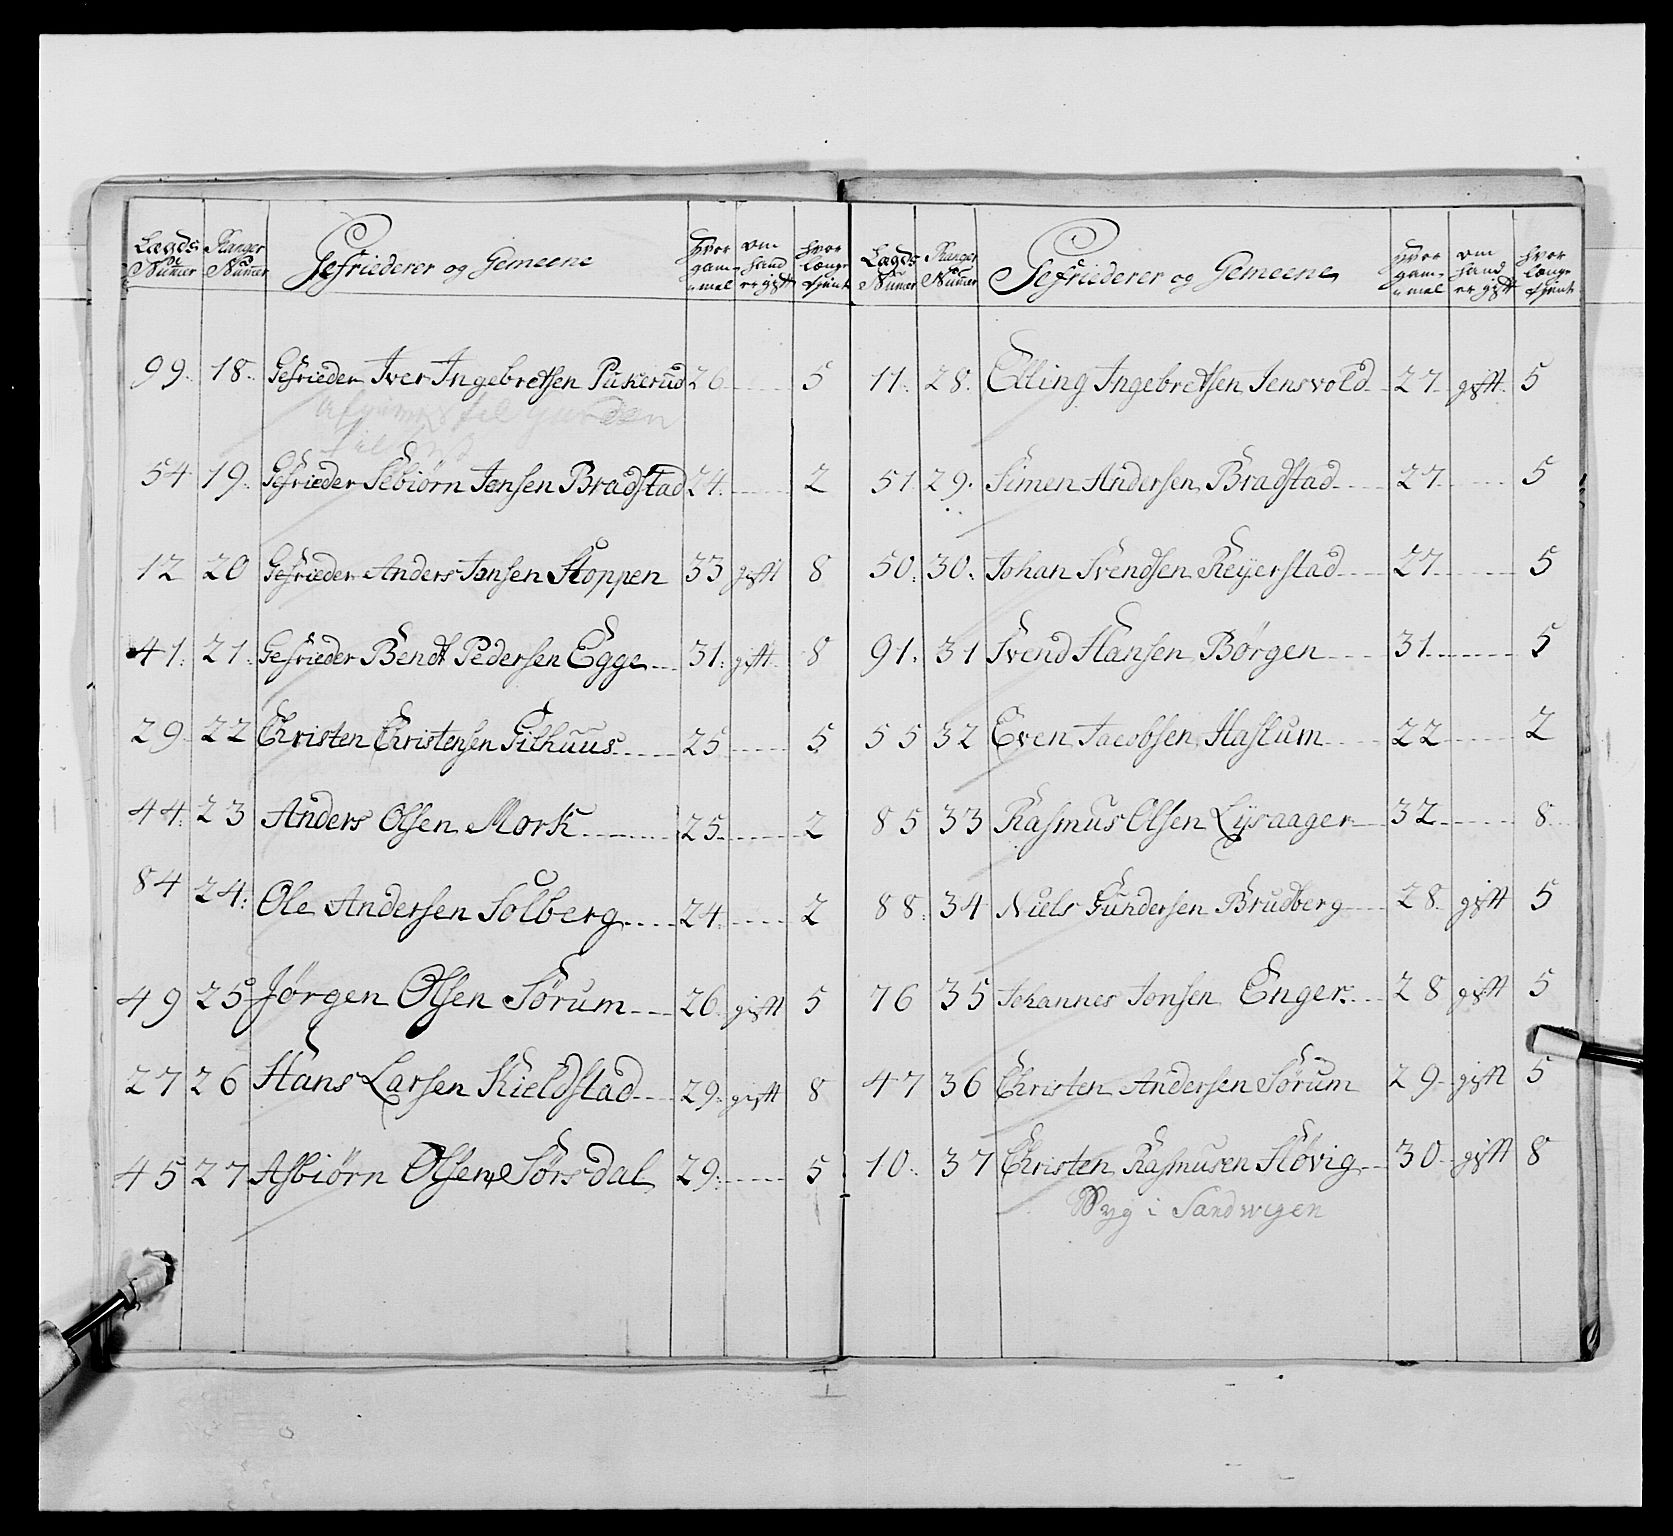 Lægds Numer Ranger Numer Gefriederer og Gemeene hvor gam- mel om hand er gift hvor længe tjent
99. 18. Gefrieder Iver Ingebretsen Pukerud 26. 5
til
54 19. Gefrieder Tebiörn Jensen Bradstad 24. 2
12 20 Gefrieder Anders Jensen Stoppen 33 gift 8
41. 21. Gefrieder Bendt Pedersen Egge 31. gift 8
29. 22 Christen Christensen Gilhuus 25 5
44. 23 Anders Olsen Mork 25. 2
84 24. Ole Andersen Solberg 24. 2
49 25 Jörgen Olsen Sörum 26. gift 5
27 26 Hans Larsen Kieldstad 29. gift 8
45 27 Asbiörn Olsen Sörsdal 29. 5
Lægds Numer Ranger Numer Gefriederer og Gemeene hvor gam- mel om hand er gift hvor længe tjent
11. 28. Elling Ingebretsen Jensvold 27 gift 5
51 29. Simen Andersen Bradstad 27 5
50. 30. Johan Svendsen Reÿerstad 27 5
91. 31 Svend Hansen Börgen 31 5
55 32 Even Jacobsen Haslum 22 2
85 33 Rasmus Olsen Lÿsaager 32 8
88. 34 Niels Gundersen Brudberg 28 gift 5
76 35 Johannes Jonsen Enger 28 gift 5
47 36 Christen Andersen Sörum 29 gift 5
10. 37 Christen Rasmusen Hövig 30 gift 8
Syg i Sandwigen